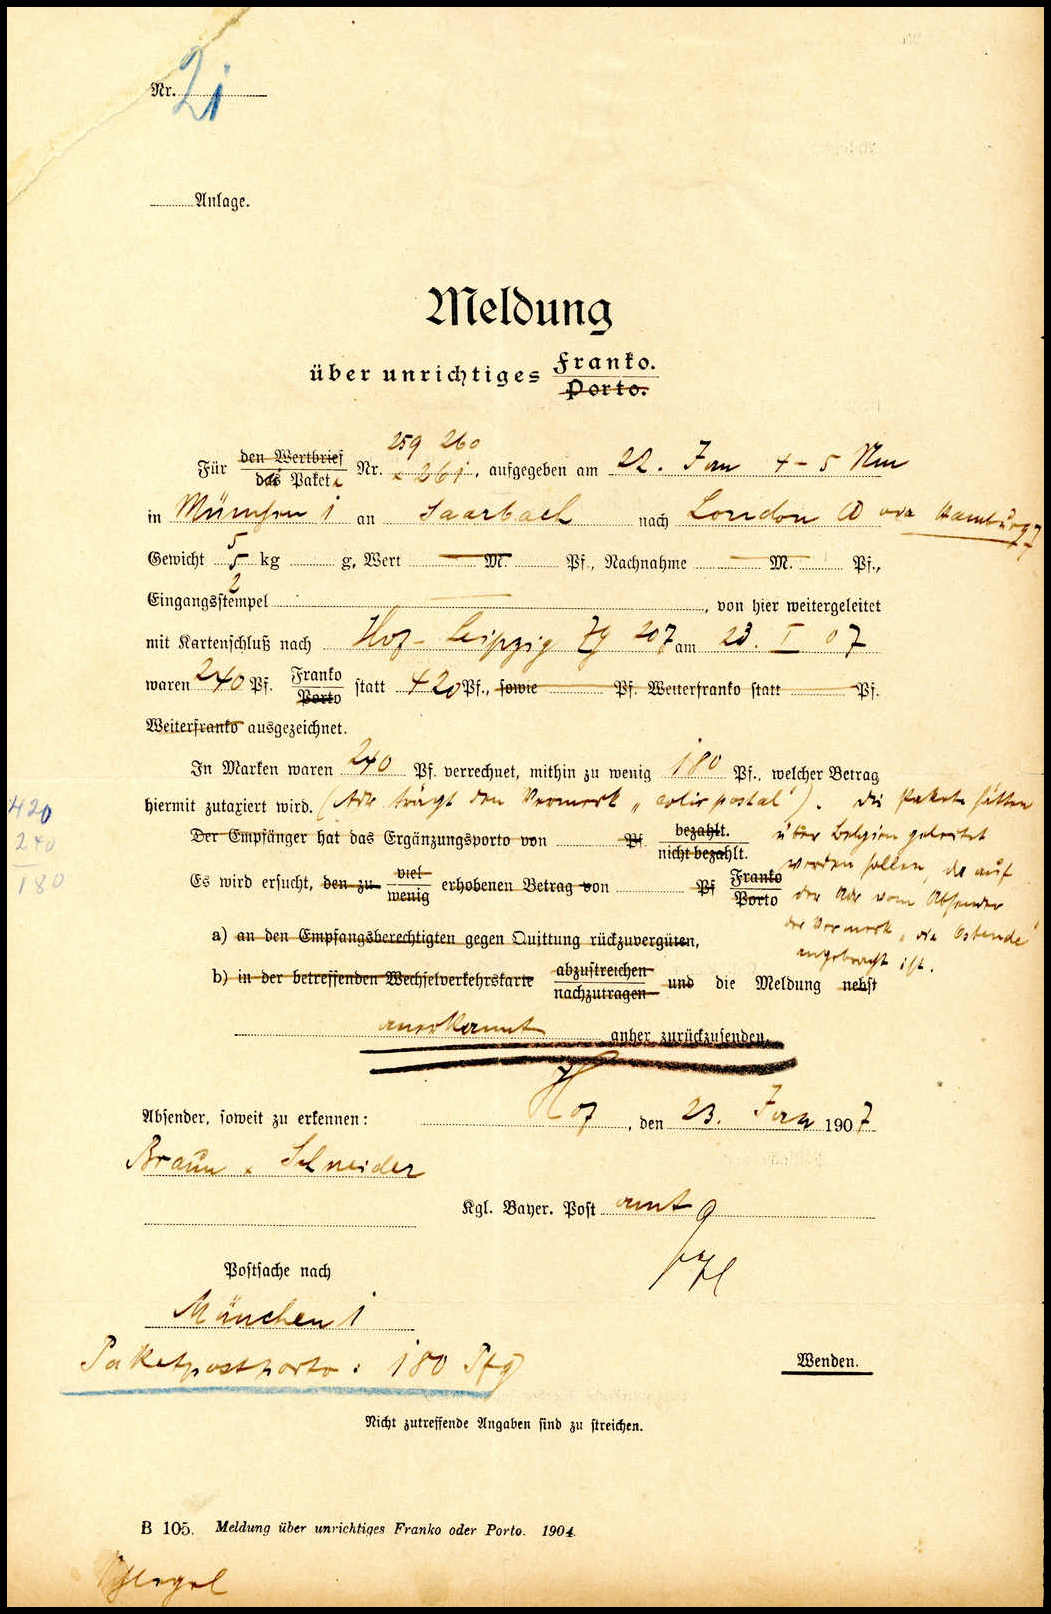 Nr. 21
Anlage.
Meldung
über unrichtiges Franko.
Porto.
259 260
Für den Wertbrief
das Pakete Nr. 261, aufgegeben am 22. Jan 4-5 Nm
in München 1 an Saarbach nach London via Hamburg
5
Gewicht 5 kg g, Wert M. Pf., Nachnahme M. Pf.,
2
Eingangsstempel, von hier weitergeleitet
mit Kartenschluß nach Hof-Leipzig Zg 207 am 23. I 07
waren 240 Pf. Franko
Porto statt 420 Pf., sowie Pf. Weiterfranko statt Pf.
Weiterfranko ausgezeichnet.
In Marken waren 240 Pf. verrechnet, mithin zu wenig 180 Pf., welcher Betrag
hiermit zutaxiert wird. (Adr trägt den Vermerk „colis postal"). Die Pakete hätten
über Belgien geleitet
werden sollen, da auf
der Adr vom Absender
der Vermerk „via Ostende"
angebracht ist.
420
240
180
Der Empfänger hat das Ergänzungsporto von Pf bezahlt.
nicht bezahlt.
Es wird ersucht, den zu viel
wenig erhobenen Betrag von Pf Franko
Porto
a) an den Empfangsberechtigten gegen Quittung rückzuvergüten,
b) in der betreffenden Wechselverkehrskarte abzustreichen
nachzutragen und die Meldung nebst
anerkannt anher zurückzusenden.
Absender, soweit zu erkennen: Hof, den 23. Jan 1907
Braun & Schneider
Kgl. Bayer. Postamt
Postsache nach
München 1
Paketpostporto: 180 Pfg
Wenden.
Nicht zutreffende Angaben sind zu streichen.
B 105. Meldung über unrichtiges Franko oder Porto. 1904.